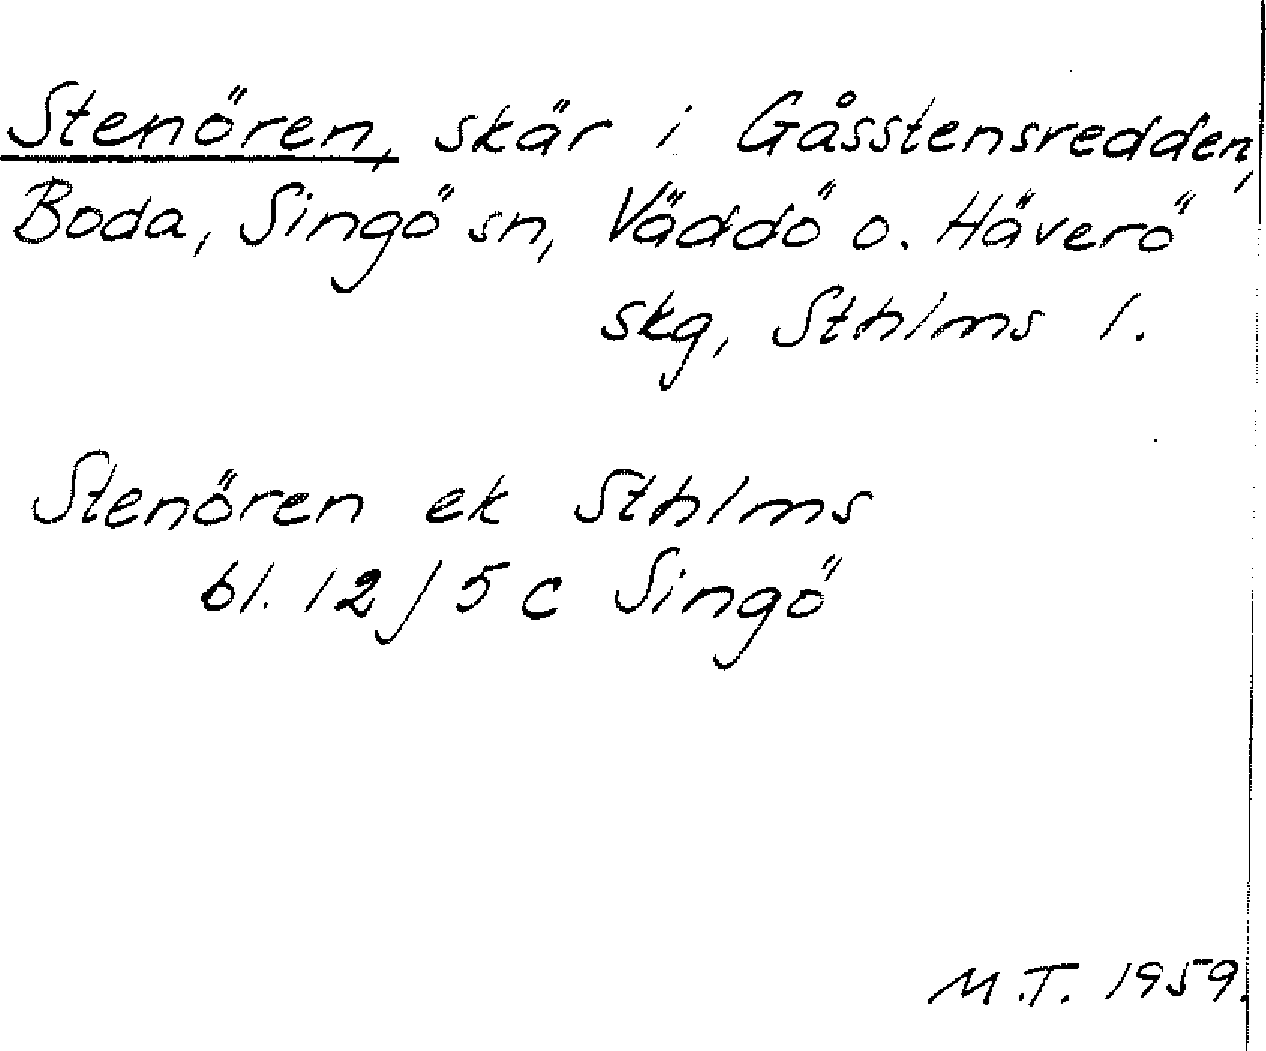 Stenören, skär i Gåsstensredden,
Boda, Singö sn, Väddö o. Häverö
skg, Sthlms l.
Stenören ek Sthlms
bl. 12 / 5 c Singö
M.T. 1959.